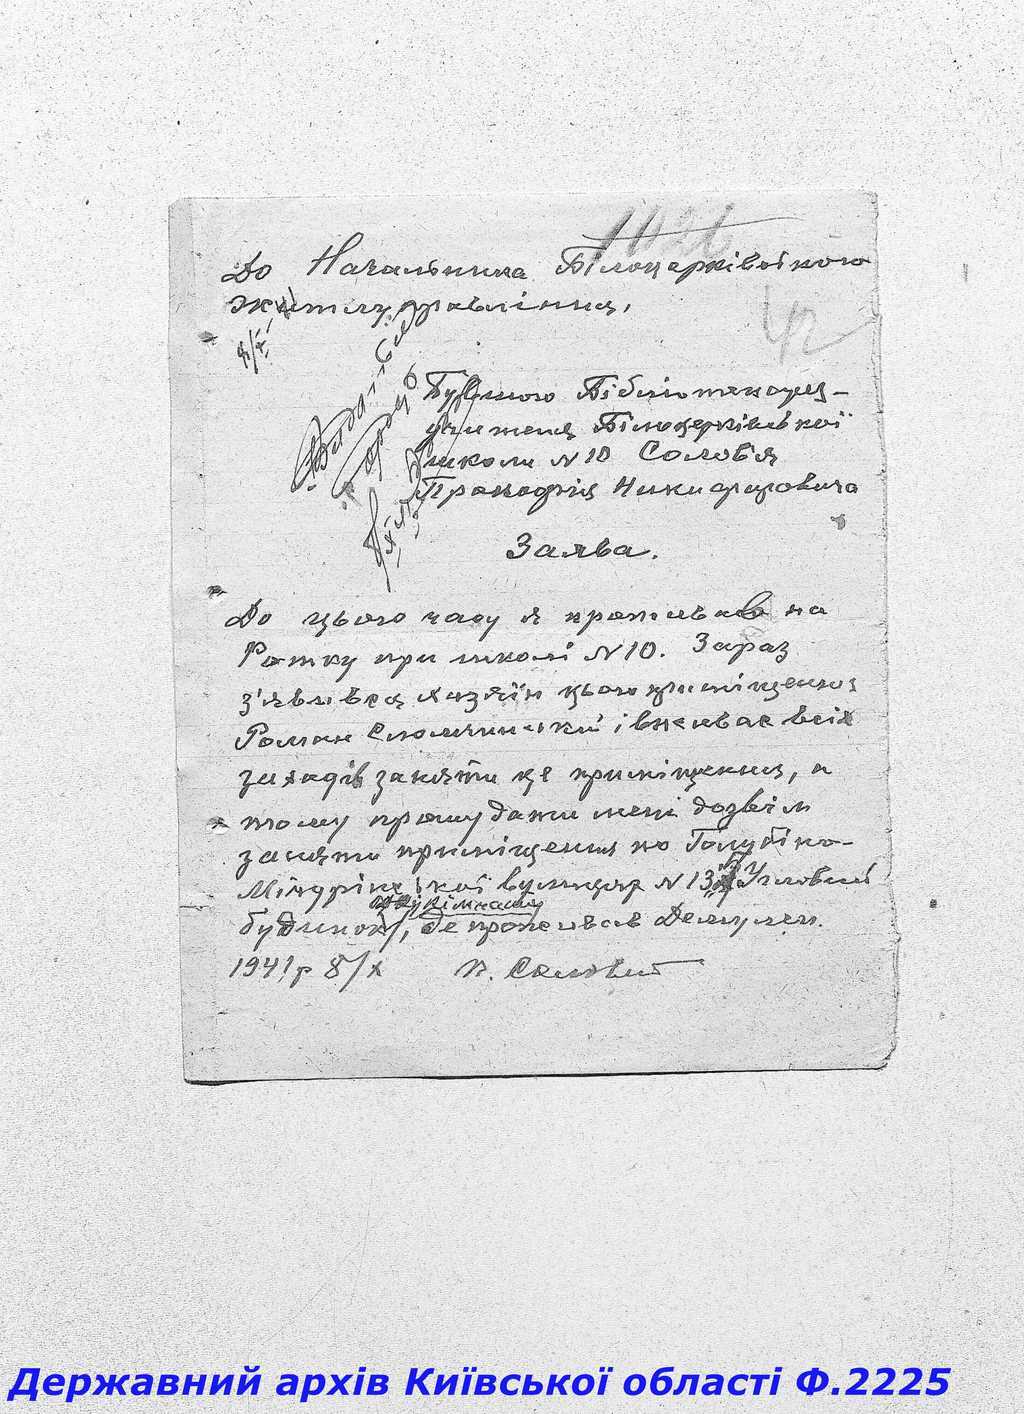 1026
До Начальника Білоцерківського
Житлуправління,
42
Бувшого Бібліотекаря-
учителя Білоцерківської
школи N 10 Солов'я
Прокофія Никифоровича
Заява.
До цього часу я проживав на
Ротку при школі N 10. Зараз
з'явився хазяїн цього приміщення
Роман і вживає всіх
заходів заняти це приміщення, а
тому прошу дати мені дозвіл
заняти приміщення по
вулиця N 13 Угловий
будинок, де проживав
1941 р 8/X П. Соловей
Державний архів Київської області Ф.2225